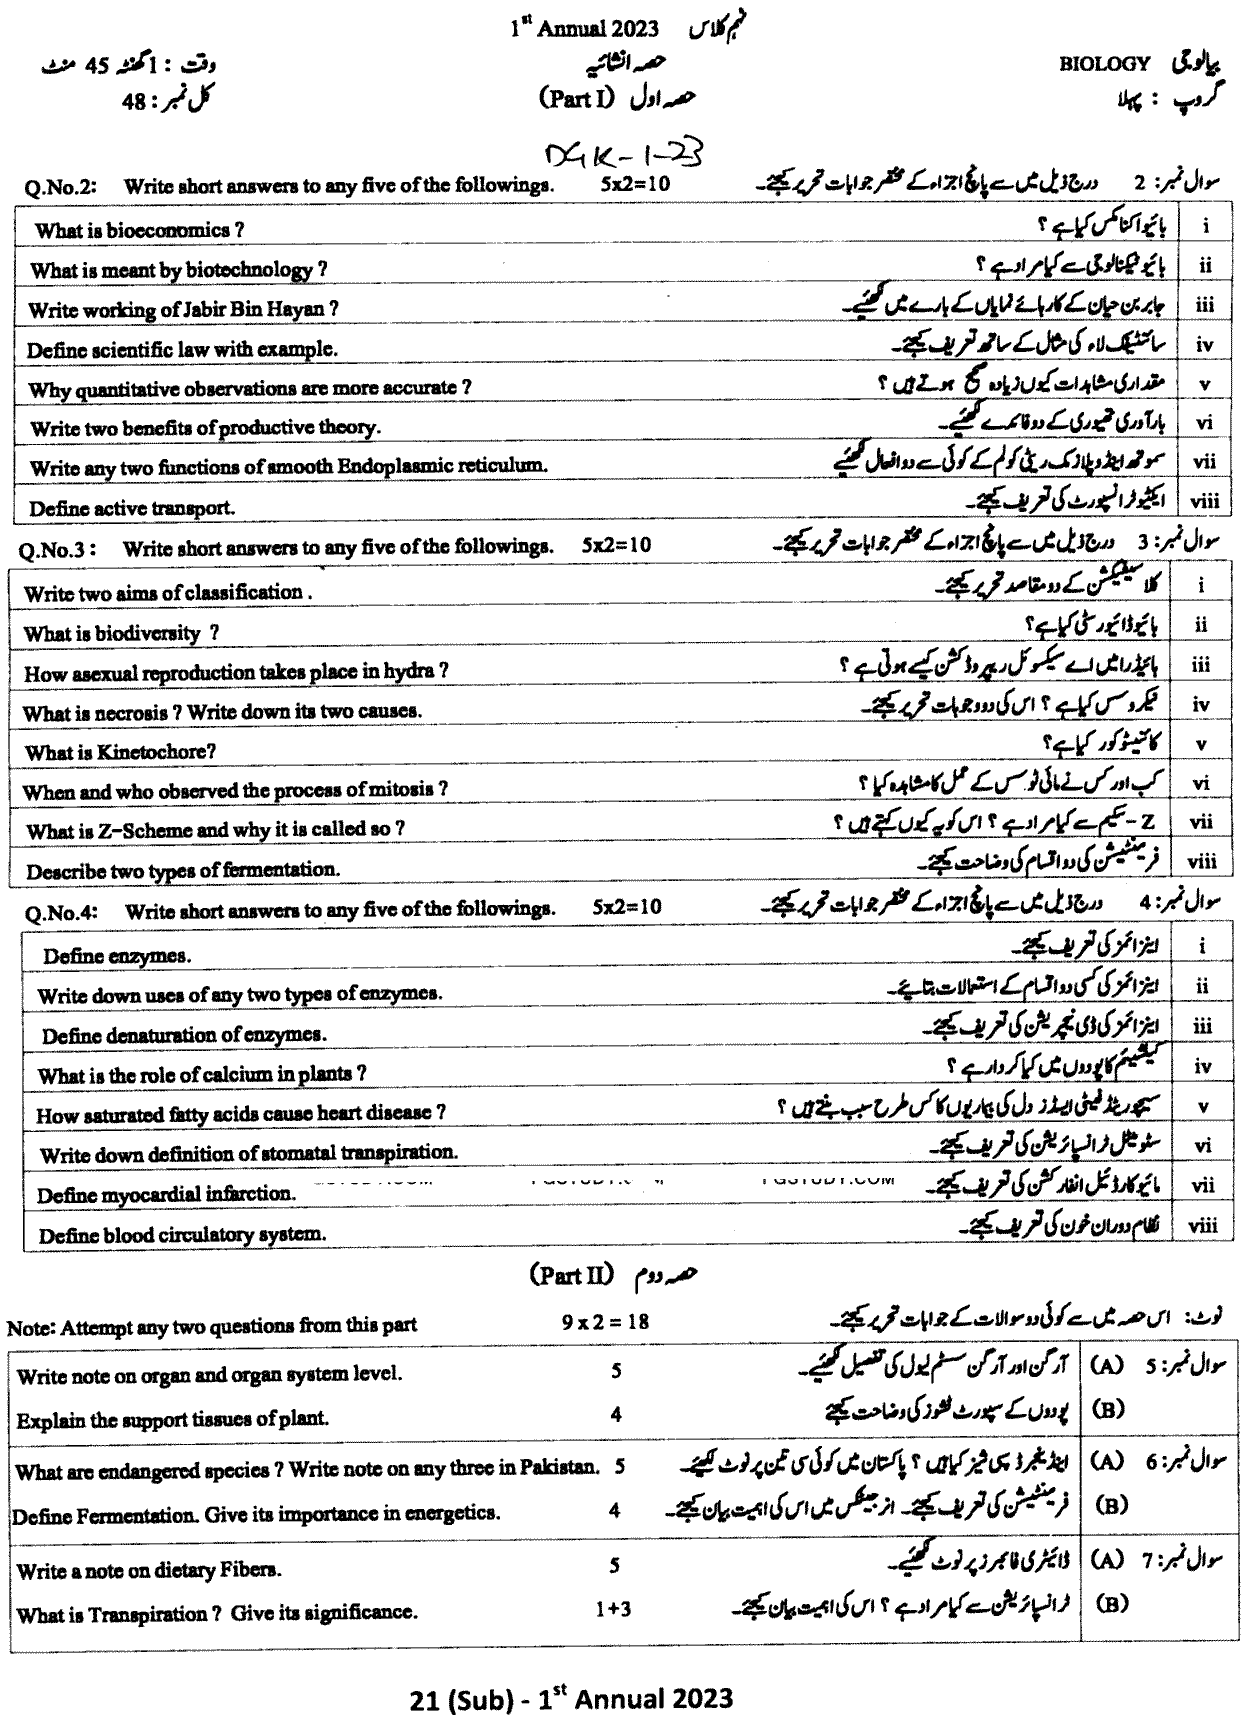 1st Annual 2023 نہم کلاس
BIOLOGY بیالوجی حصہ انشائیہ وقت : 1 گھنٹہ 45 منٹ
گروپ : پہلا حصہ اول (Part I) کل نمبر : 48
DGK-1-23
Q.No.2: Write short answers to any five of the followings. 5x2=10 سوال نمبر: 2 درج ذیل میں سے پانچ اجزاء کے مختصر جوابات تحریر کیجئے۔
What is bioeconomics ? بائیو اکنامکس کیا ہے ؟ i
What is meant by biotechnology ? بائیو ٹیکنالوجی سے کیا مراد ہے ؟ ii
Write working of Jabir Bin Hayan ? جابر بن حیان کے کارہائے نمایاں کے بارے میں لکھئیے۔ iii
Define scientific law with example. سائنٹیفک لاء کی مثال کے ساتھ تعریف کیجئے۔ iv
Why quantitative observations are more accurate ? مقداری مشاہدات کیوں زیادہ صحیح ہوتے ہیں ؟ v
Write two benefits of productive theory. بارآوری تھیوری کے دو فائدے لکھئیے۔ vi
Write any two functions of smooth Endoplasmic reticulum. سموتھ اینڈوپلازمک ریٹی کولم کے کوئی سے دو افعال لکھئیے vii
Define active transport. ایکٹو ٹرانسپورٹ کی تعریف کیجئے۔ viii
Q.No.3 : Write short answers to any five of the followings. 5x2=10 سوال نمبر: 3 درج ذیل میں سے پانچ اجزاء کے مختصر جوابات تحریر کیجئے۔
Write two aims of classification . کلاسیفیکیشن کے دو مقاصد تحریر کیجئے۔ i
What is biodiversity ? بائیوڈائیورسٹی کیا ہے؟ ii
How asexual reproduction takes place in hydra ? ہائیڈرا میں اے سیکسوئل ریپروڈکشن کیسے ہوتی ہے ؟ iii
What is necrosis ? Write down its two causes. نیکروسس کیا ہے ؟ اس کی دو وجوہات تحریر کیجئے۔ iv
What is Kinetochore? کائنیٹوکور کیا ہے؟ v
When and who observed the process of mitosis ? کب اور کس نے مائی ٹوسس کے عمل کا مشاہدہ کیا ؟ vi
What is Z-Scheme and why it is called so ? Z - سکیم سے کیا مراد ہے ؟ اس کو یہ کیوں کہتے ہیں ؟ vii
Describe two types of fermentation. فرمنٹیشن کی دو اقسام کی وضاحت کیجئے۔ viii
Q.No.4: Write short answers to any five of the followings. 5x2=10 سوال نمبر: 4 درج ذیل میں سے پانچ اجزاء کے مختصر جوابات تحریر کیجئے۔
Define enzymes. اینزائمز کی تعریف کیجئے۔ i
Write down uses of any two types of enzymes. اینزائمز کی کسی دو اقسام کے استعمالات بتائیے۔ ii
Define denaturation of enzymes. اینزائمز کی ڈی نیچریشن کی تعریف کیجئے۔ iii
What is the role of calcium in plants ? کیلشیئم کا پودوں میں کیا کردار ہے ؟ iv
How saturated fatty acids cause heart disease ? سیچوریٹڈ فیٹی ایسڈز دل کی بیماریوں کا کس طرح سبب بنتے ہیں ؟ v
Write down definition of stomatal transpiration. سٹومیٹل ٹرانسپائریشن کی تعریف کیجئے۔ vi
Define myocardial infarction. مائیوکارڈیئل انفارکشن کی تعریف کیجئے۔ vii
Define blood circulatory system. نظام دوران خون کی تعریف کیجئے۔ viii
(Part II) حصہ دوم
Note: Attempt any two questions from this part 9 x 2 = 18 نوٹ: اس حصہ میں سے کوئی دو سوالات کے جوابات تحریر کیجئے۔
Write note on organ and organ system level. 5 آرگن اور آرگن سسٹم لیول کی تفصیل لکھئیے۔ (A) سوال نمبر: 5
Explain the support tissues of plant. 4 پودوں کے سپورٹ ٹشوز کی وضاحت کیجئے (B)
What are endangered species ? Write note on any three in Pakistan. 5 اینڈینجرڈ سپی شیز کیا ہیں ؟ پاکستان میں کوئی سی تین پر نوٹ لکھیئے۔ (A) سوال نمبر: 6
Define Fermentation. Give its importance in energetics. 4 فرمنٹیشن کی تعریف کیجئے۔ انرجیٹکس میں اس کی اہمیت بیان کیجئے۔ (B)
Write a note on dietary Fibers. 5 ڈائیٹری فائبرز پر نوٹ لکھئیے۔ (A) سوال نمبر: 7
What is Transpiration ? Give its significance. 1+3 ٹرانسپائریشن سے کیا مراد ہے ؟ اس کی اہمیت بیان کیجئے۔ (B)
21 (Sub) - 1st Annual 2023